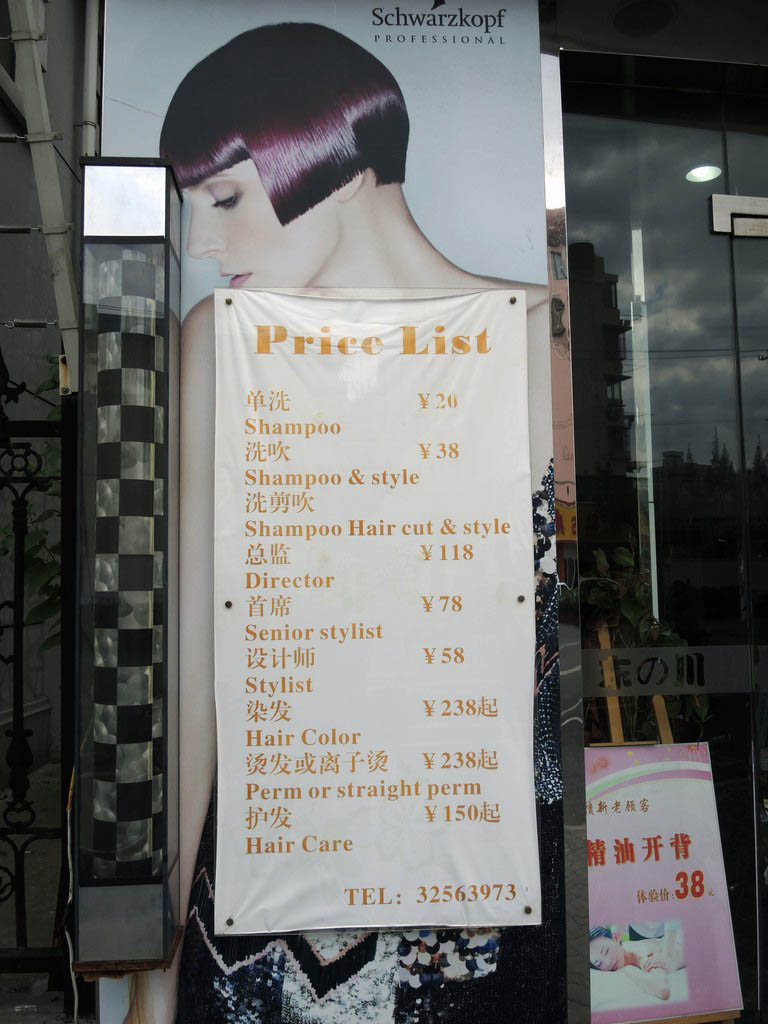 Schwarzkopf
PROFESSIONAL
Price List
单洗 ¥20
Shampoo
洗吹 ¥38
Shampoo & style
洗剪吹
Shampoo Hair cut & style
总监 ¥118
Director
首席 ¥78
Senior stylist
设计师 ¥58
Stylist
染发 ¥238起
Hair Color
烫发或离子烫 ¥238起
Perm or straight perm
护发 ¥150起
Hair Care
TEL: 32563973
の川
新老顾客
精油开背
体验价:38元